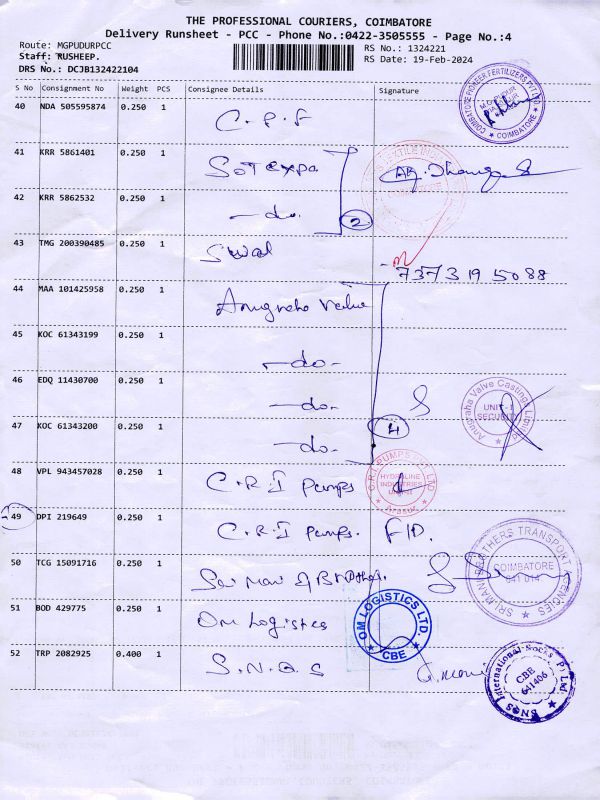 THE PROFESSIONAL COURIERS, COIMBATORE
Delivery Runsheet - PCC - Phone No.:0422-3505555 - Page No.:4
Route: MGPUDURPCC
RS No.: 1324221
Staff: RUSHEEP.
RS Date: 19-Feb-2024
DRS No.: DCJB132422104
S No Consignment No Weight PCS Consignee Details Signature
40 NDA 505595874 0.250 1 C.P.F
COIMBATORE PIONEER FERTILIZERS PVT LTD
COIMBATORE
41 KRR 5861401 0.250 1
42 KRR 5862532 0.250 1 -do- 2
43 TMG 200390485 0.250 1
73731 95088
44 MAA 101425958 0.250 1 Anugraha Valve
45 KOC 61343199 0.250 1 -do-
46 EDQ 11430700 0.250 1 -do-
Anugraha Valve Castings Limited
UNIT-1
SECURITY
47 KOC 61343200 0.250 1 -do- 4
48 VPL 943457028 0.250 1 C.R.I Pumps
C.R.I. PUMPS PVT LTD
HYDROLINE
INDUSTRIES
Arasur
49 DPI 219649 0.250 1 C.R.I Pumps. F/D.
50 TCG 15091716 0.250 1
COIMBATORE
641 014
51 BOD 429775 0.250 1 Om Logistics
OM LOGISTICS LTD.
CBE
52 TRP 2082925 0.400 1 S.N.Q.S
SNQS International Socks P. Ltd.
CBE
641406